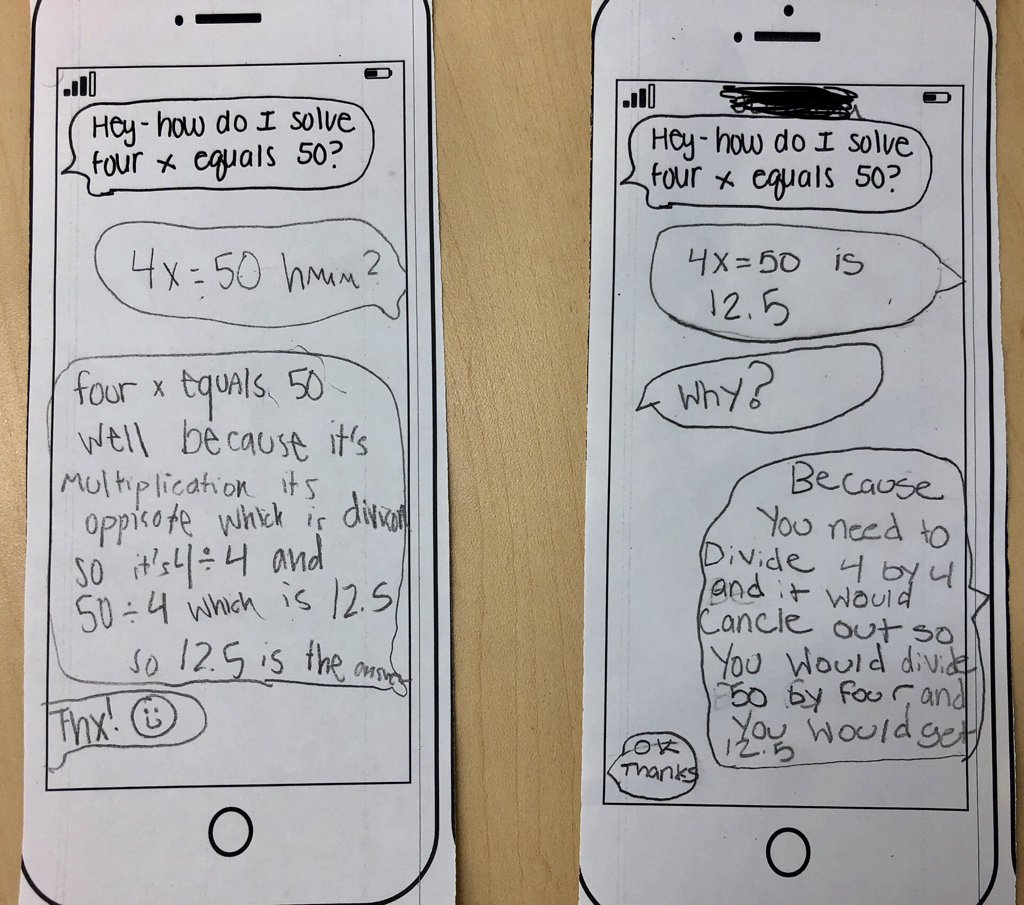 Hey-how do I solve
four x equals 50?
4x=50 hmm?
four x equals 50
well because it's
multiplication its
oppisote which is divison
so it's 4÷4 and
50÷4 which is 12.5
so 12.5 is the answer
Thx!
Hey-how do I solve
four x equals 50?
4x=50 is
12.5
Why?
Because
You need to
Divide 4 by 4
and it would
Cancle out so
You would divide
50 by four, and
You would get
12.5
OK
Thanks